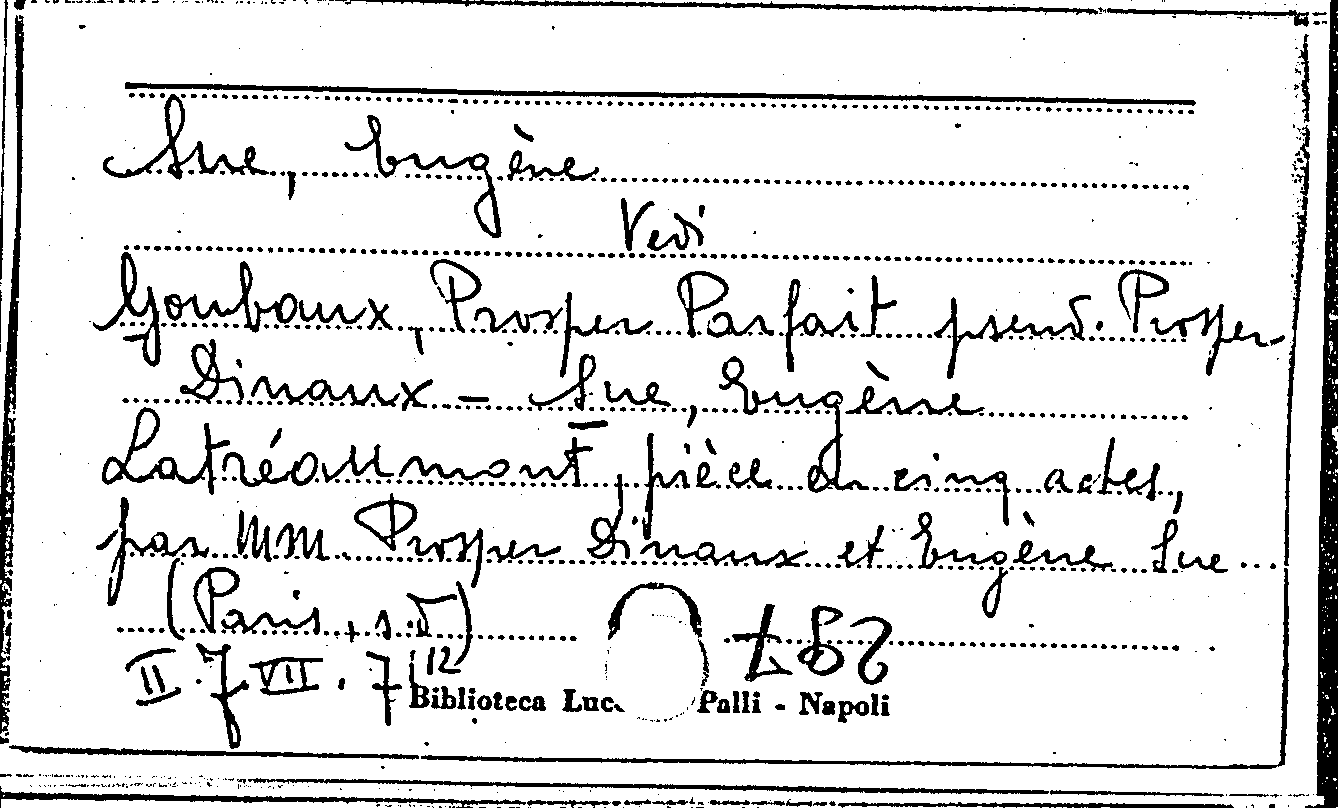 Sue, Eugène
Vedi
Goubaux, Prosper Parfait pseud. Prosper
Dinaux - Sue, Eugène
Latréaumont, pièce en cinq actes,
par MM. Prosper Dinaux et Eugène Sue...
(Paris, s.d)
II. J. VII. 7(12
Biblioteca Luc Palli - Napoli